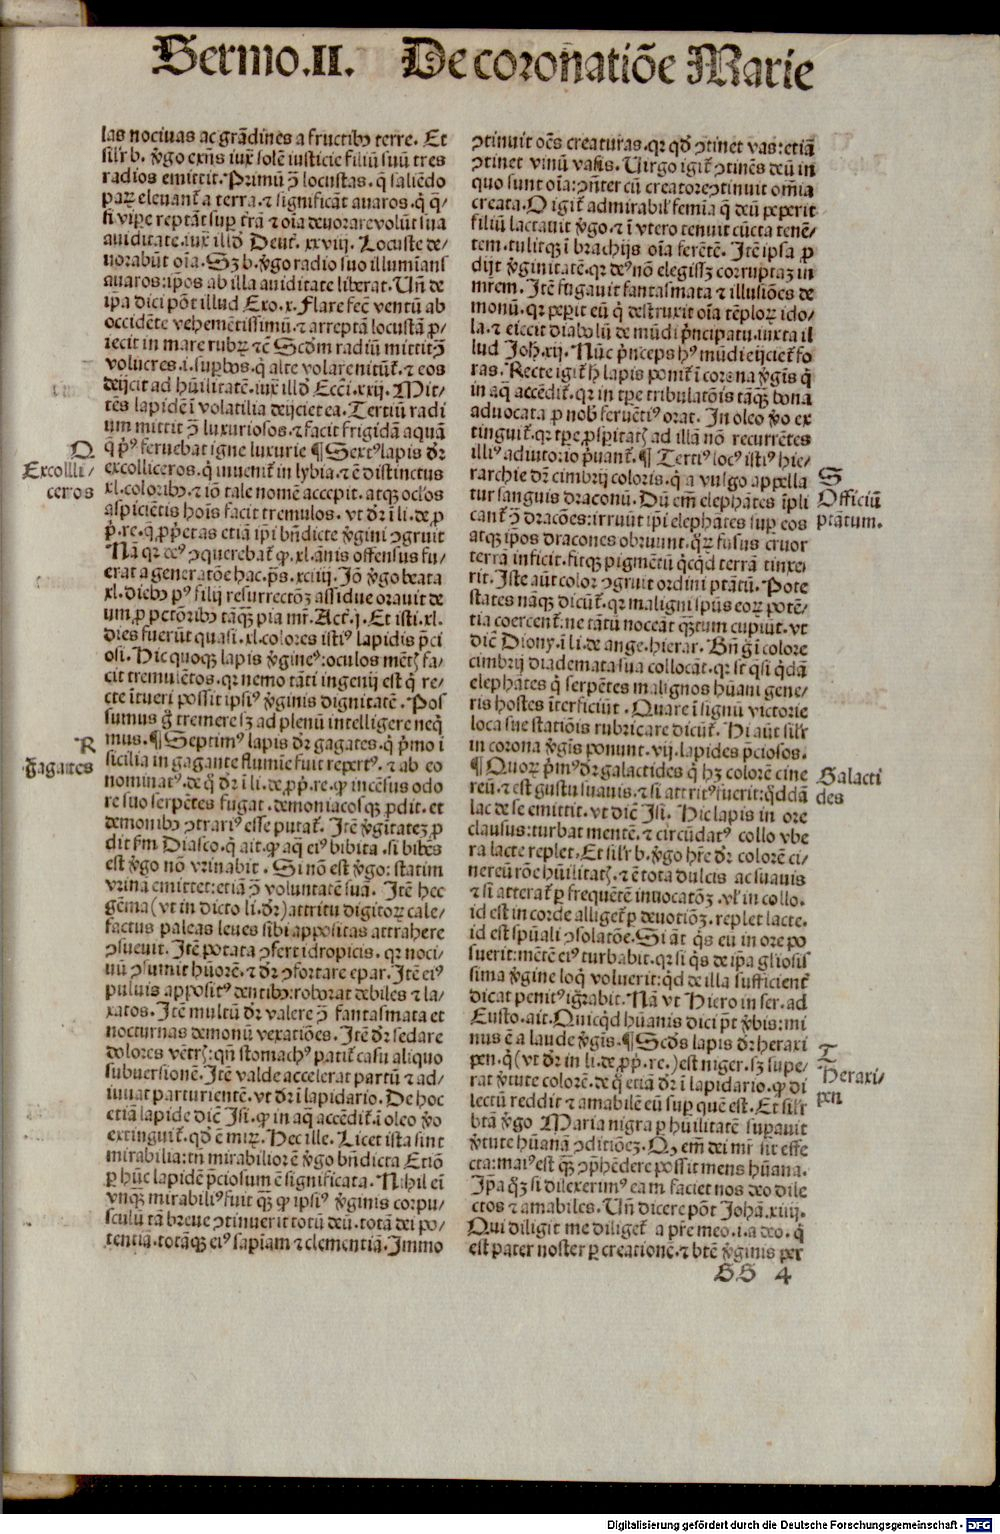 Sermo.II. De coronatiõe Marie
las nociuas ac grãdines a fructibꝰ terre. Et
sil'r b. v̄go exñs iux̄ solē iusticie filiū suū tres
radios emittit. Primū ↄ̄ locustas. q̄ saliēdo
paꝝ eleuant᷑ a terra. ⁊ significãt auaros. q̇ q̄-
si vip̄e reptãt sup t̄rã ⁊ oīa deuorare volūt sua
auiditate. iux̄ illđ Deut᷑. xxviij. Locuste de-
uorabūt oīa. Sꝫ b. v̄go radio suo illumīans
auaros: ip̄os ab illa auiditate liberat. Uñ de
ip̄a dici pōt illud Exo. x. Flare fec̄ ventū ab
occidēte vehemētissimū. ⁊ arreptã locustã p̄-
iecit in mare rubꝝ ⁊c̄ Scd'm radiū mittit ↄ̄
volucres. i. sup̄bos. q̇ alte volare nitūt᷑. ⁊ eos
deijcit ad hūilitatē. iux̄ illđ Ecc̄i. xxij. Mit-
tēs lapidē ī volatilia deijciet ea. Tertiū radi
um mittit ↄ̄ luxuriosos. ⁊ facit frigidã aquã
q̄ pꝰ feruebat igne luxurie ¶ Sextꝰ lapis dr̄
excolliceros. q̇ inuenit᷑ in lybia. ⁊ ē distinctus
xl. coloribꝰ. ⁊ iō tale nomē accepit. atqꝫ oc'los
aspiciētis hoīs facit tremulos. vt dr̄ ī li. de p̄
p̄. re. q̄ p̄p̄etas etiã ip̄i bn̄dicte v̄gini ↄgruit
Nã qr deꝰ ↄquerebat᷑ ꝙ. xl. ãnis offensus fu-
erat a generatōe hac. ps. xciiij. Jō v̄go beata
xl. diebꝰ pꝰ filij resurrectōꝫ assidue orauit de
um. ꝓ pctōribꝰ tãqꝫ pia mr̄. Act᷑. j. Et isti. xl.
dies fuerūt quasi. xl. colores istiꝰ lapidis p̄ci
osi. Hic quoqꝫ lapis v̄gineꝰ: oculos mētꝭ fa-
cit tremulētos. qr nemo tãti ingenij est q̇ re-
cte ītueri possit ipsiꝰ v̄ginis dignitatē. Pos
sumus g̊ tremere sꝫ ad plenū intelligere neq̇
mus. ¶ Septimꝰ lapis dr̄ gagates. q̇ p̄mo ī
sicilia in gagante flumīe fuit repertꝰ. ⁊ ab eo
nominatꝰ. de q̊ dr̄ ī li. de p̄p̄. re. ꝙ incēsus odo
re suo serpētes fugat. demoniacosqꝫ ꝓdit. et
demonibꝰ ↄtrariꝰ esse putat᷑. Jtē v̄gītatēꝫ ꝓ
dit fm̄ Diasco. q̇ ait. ꝙ aq̄ eiꝰ bibita. si bibēs
est v̄go nō vrinabit. Si nō est v̄go: statim
vrinã emittet: etiã ↄ̄ voluntatē suã. Jtē hec
gēma (vt in dicto li. dr̄) attritu digitoꝝ cale-
factus paleas leues sibi appositas attrahere
ↄsueuit. Jtē potata ↄfert idropicis. qr noci-
uū ↄsumit hūorē. ⁊ dr̄ ↄfortare epar. Jtē eiꝰ
puluis appositꝰ dentibꝰ: roborat debiles ⁊ la-
xatos. Jtē multū dr̄ valere ↄ̄ fantasmata et
nocturnas demonū vexatiōes. Jtē dr̄ sedare
dolores vētrꝭ: qñ stomachꝰ patit᷑ casu aliquo
subuersionē. Jtē valde accelerat partū ⁊ ad-
iuuat parturientē. vt dr̄ ī lapidario. De hoc
etiã lapide dic̄ Jsi. ꝙ in aq̄ accēdit᷑. ī oleo v̊o
extinguit᷑. qđ ē miꝝ. Hec ille. Licet ista sint
mirabilia: tñ mirabiliorē v̄go bn̄dicta Etiō
p̱ hūc lapidē p̄ciosum ē significata. Nihil eī
vnqꝫ mirabiliꝰ fuit qꝫ̄ ꝙ ipsiꝰ v̄ginis corpu-
sculū tã breue ↄtinuerit totū deū. totã dei po-
tentiã. totãqꝫ eiꝰ sapiam ⁊ clementiã. Jmmo
Q
Excolli-
ceros
R
Gagates
ↄtinuit oēs creaturas. qr qđ ↄtinet vas: etiã
ↄtinet vinū vasis. Virgo igit᷑ ↄtinēs deū in
quo sunt oīa: ↄn̄ter cū creatore ↄtinuit om̄ia
creata. O igit᷑ admirabil' femīa q̄ deū peperit
filiū lactauit v̄go. ⁊ ī vtero tenuit cūcta tenē-
tem. tulitqꝫ ī brachijs oīa ferētē. Jtē ipsa ꝓ
dijt v̄ginitatē. qr deꝰ nō elegissꝫ corruptaꝫ in
mr̄em. Jtē fugauit fantasmata ⁊ illusiōes de
monū. qr pep̄it eū q̇ destruxit oīa tēploꝝ ido-
la. ⁊ eiecit diabolū de mūdi p̄ncipatu. iuxta il
lud Joh. xij. Nūc p̄nceps hꝰ mūdi eijciet᷑ fo
ras. Recte igit᷑ h̓ lapis ponit᷑ ī corona v̄gīs q̇
in aq̄ accēdit᷑. qr in tp̄e tribulatōis tãqꝫ bona
aduocata ꝓ nob̄ feruētiꝰ orat. In oleo v̊o ex
tinguit᷑. qr tp̄e p̄spitatꝭ ad illã nō recurrētes
illiꝰ adiutorio p̄uant᷑. ¶ Tertiꝰ locꝰ istiꝰ hie-
rarchie dr̄ cimbrij coloris. q̇ a vulgo appella
tur sanguis draconū. Dū em̄ elephātes īpli
cant᷑ ↄ̄ dracōes: irruūt ip̄i elephātes sup eos
atqꝫ ip̄os dracones obruunt. q̊ꝝ fusus cruor
terrã inficit. fitqꝫ pigmētū qc̓qđ terrã tinxe-
rit. Jste aūt color ↄgruit ordini ptãtū. Pote
states nãqꝫ dicūt᷑. qr maligni spūs eoꝝ potē-
tia coercent᷑: ne tãtū noceãt qꝫ̄tum cupiūt. vt
dic̄ Diony. ī li. de ange. hierar. Bñ g̊ ī colore
cimbrij diademata sua collocãt. qr st̄ q̓si q̓dã
elephātes q̇ serpētes malignos hūani gene-
ris hostes īterficiūt. Quare ī signū victorie
loca sue statiōis rubricare dicūt᷑. Hi aūt sil'r
in corona v̄gīs ponunt. vij. lapides p̄ciosos.
¶ Quoꝝ p̄mꝰ dr̄ galactides q̇ hꝫ colorē cine
reū. ⁊ est gustu suauis. ⁊ si attritꝰ fuerit: q̓ddã
lac de se emittit. vt dic̄ Jsi. Hic lapis in ore
clausus: turbat mentē. ⁊ circūdatꝰ collo vbe
ra lacte replet. Et sil'r b. v̄go hr̄e dr̄ colorē ci-
nereū rōe hūilitatꝭ. ⁊ ē tota dulcis ac suauis
⁊ si atterat᷑ p̱ frequētē inuocatōꝫ. vl' in collo.
id est in corde alliget᷑ p̱ deuotiōꝫ. replet lacte.
id est spūali ↄsolatōe. Si āt q̇s eū in ore po
suerit: mētē eiꝰ turbabit. qr si q̇s de ip̄a gliosis
sima v̄gine loq̇ voluerit: qđ de illa sufficient᷑
dicat penitꝰ ig̊rabit. Nã vt Hiero in ser. ad
Eusto. ait. Quicqđ hūanis dici pt̄ v̄bis: mi
nus ē a laude v̄gīs. ¶ Scd's lapis dr̄ heraxi
pen. q̇ (vt dr̄ in li. de p̄p̄. re.) est niger. sꝫ supe-
rat v̄tute colorē. de q̊ etiã dr̄ ī lapidario. ꝙ di
lectū reddit ⁊ amabilē eū sup quē est. Et sil'r
btã v̄go Maria nigra p̱ hūilitatē supauit
v̄tute hūanã ↄditiōeꝫ. Qꝫ em̄ dei mr̄ sit effe
cta: maiꝰ est qꝫ̄ ↄp̄hēdere possit mens hūana.
Jp̄a q̊ꝫ si dilexerimꝰ eam faciet nos deo dile
ctos ⁊ amabiles. Uñ dicere pōt Johã. xiiij.
Qui diligit me diliget᷑ a pr̄e meo. i. a deo. q̇
est pater noster p̱ creationē. ⁊ btē v̄ginis per
S
Officiū
ptātum.
Galacti
des
T
Heraxi-
pen
SS 4
Digitalisierung gefördert durch die Deutsche Forschungsgemeinschaft - DFG